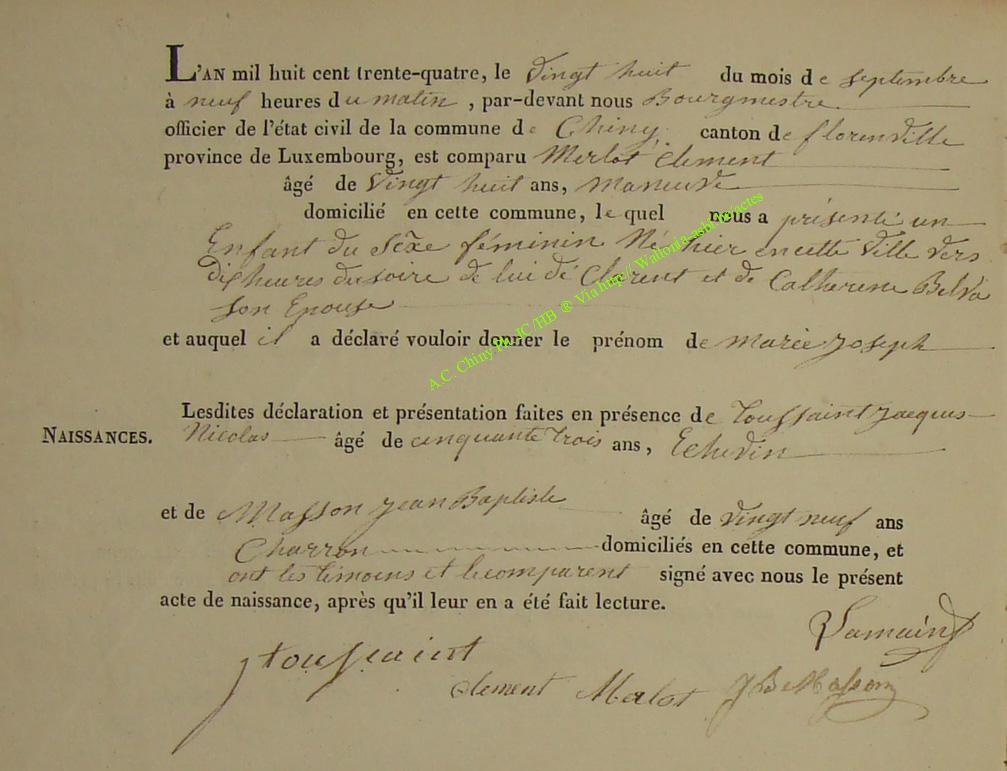 L'AN mil huit cent trente-quatre, le Vingt huit du mois de septembre
à neuf heures du matin , par-devant nous Bourgmestre
officier de l'état civil de la commune de Chiny canton de florenville
province de Luxembourg, est comparu Merlot Clement
âgé de Vingt huit ans, maneuvre
domicilié en cette commune, le quel nous a présenté un
Enfant du Séxe féminin Né hier en cette Ville vers
dix heures du soire de lui dé Clement et de Catherine Belva
son Epouse
et auquel il a déclaré vouloir donner le prénom de marie joseph
Lesdites déclaration et présentation faites en présence de Toussaint jacques
NAISSANCES. Nicolas âgé de cinquante trois ans, Echevin
et de Masson jean Baptiste âgé de Vingt neuf ans
Charron domiciliés en cette commune, et
ont les témoins et le comparent signé avec nous le présent
acte de naissance, après qu'il leur en a été fait lecture.
jtoussaint
clement Merlot JB Masson
A.C. Chiny Ph. JC/HB ® Via http:// Wallonia-asbl